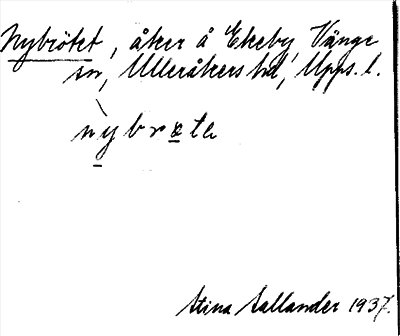 Nybrötet, åker å Ekeby, Vänge
sn, Ulleråkers hd, Upps. l.
ǹybrœ̠te
Stina Sallander 1937.